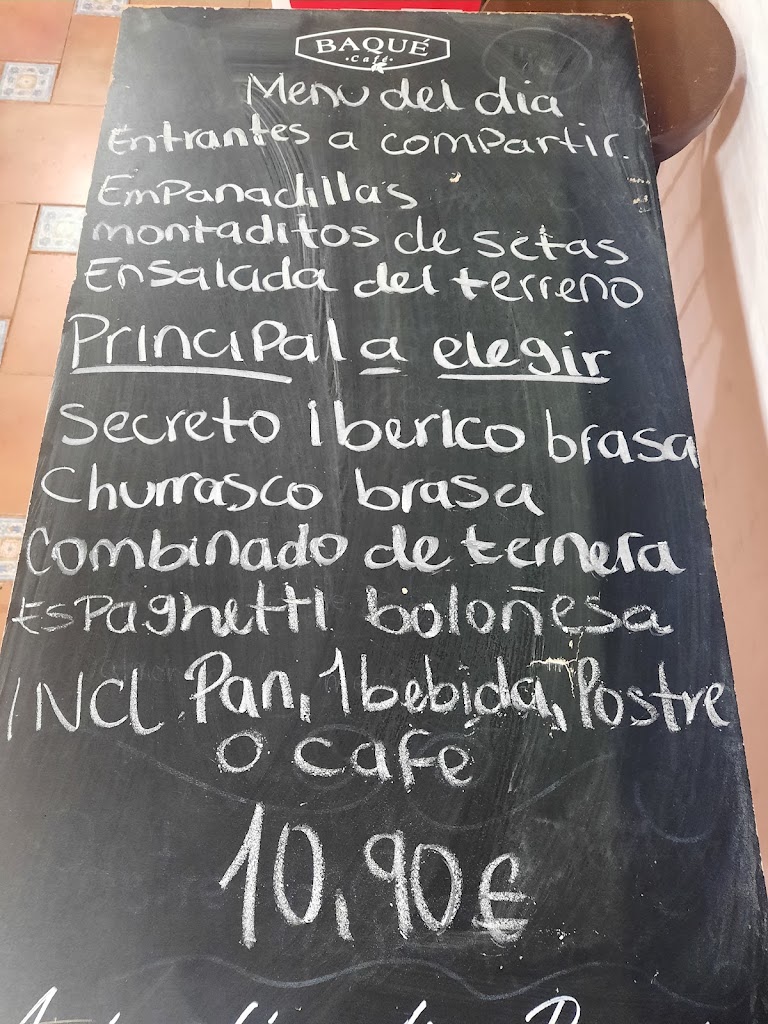 BAQUÉ
Café
Menu del dia
Entrantes a compartir.
Empanadillas
montaditos de setas
Ensalada del terreno
Principal a elegir
Secreto iberico brasa
Churrasco brasa
Combinado de ternera
Espaghetti boloñesa
INCL. Pan, 1 bebida, Postre
o cafe
10,90€